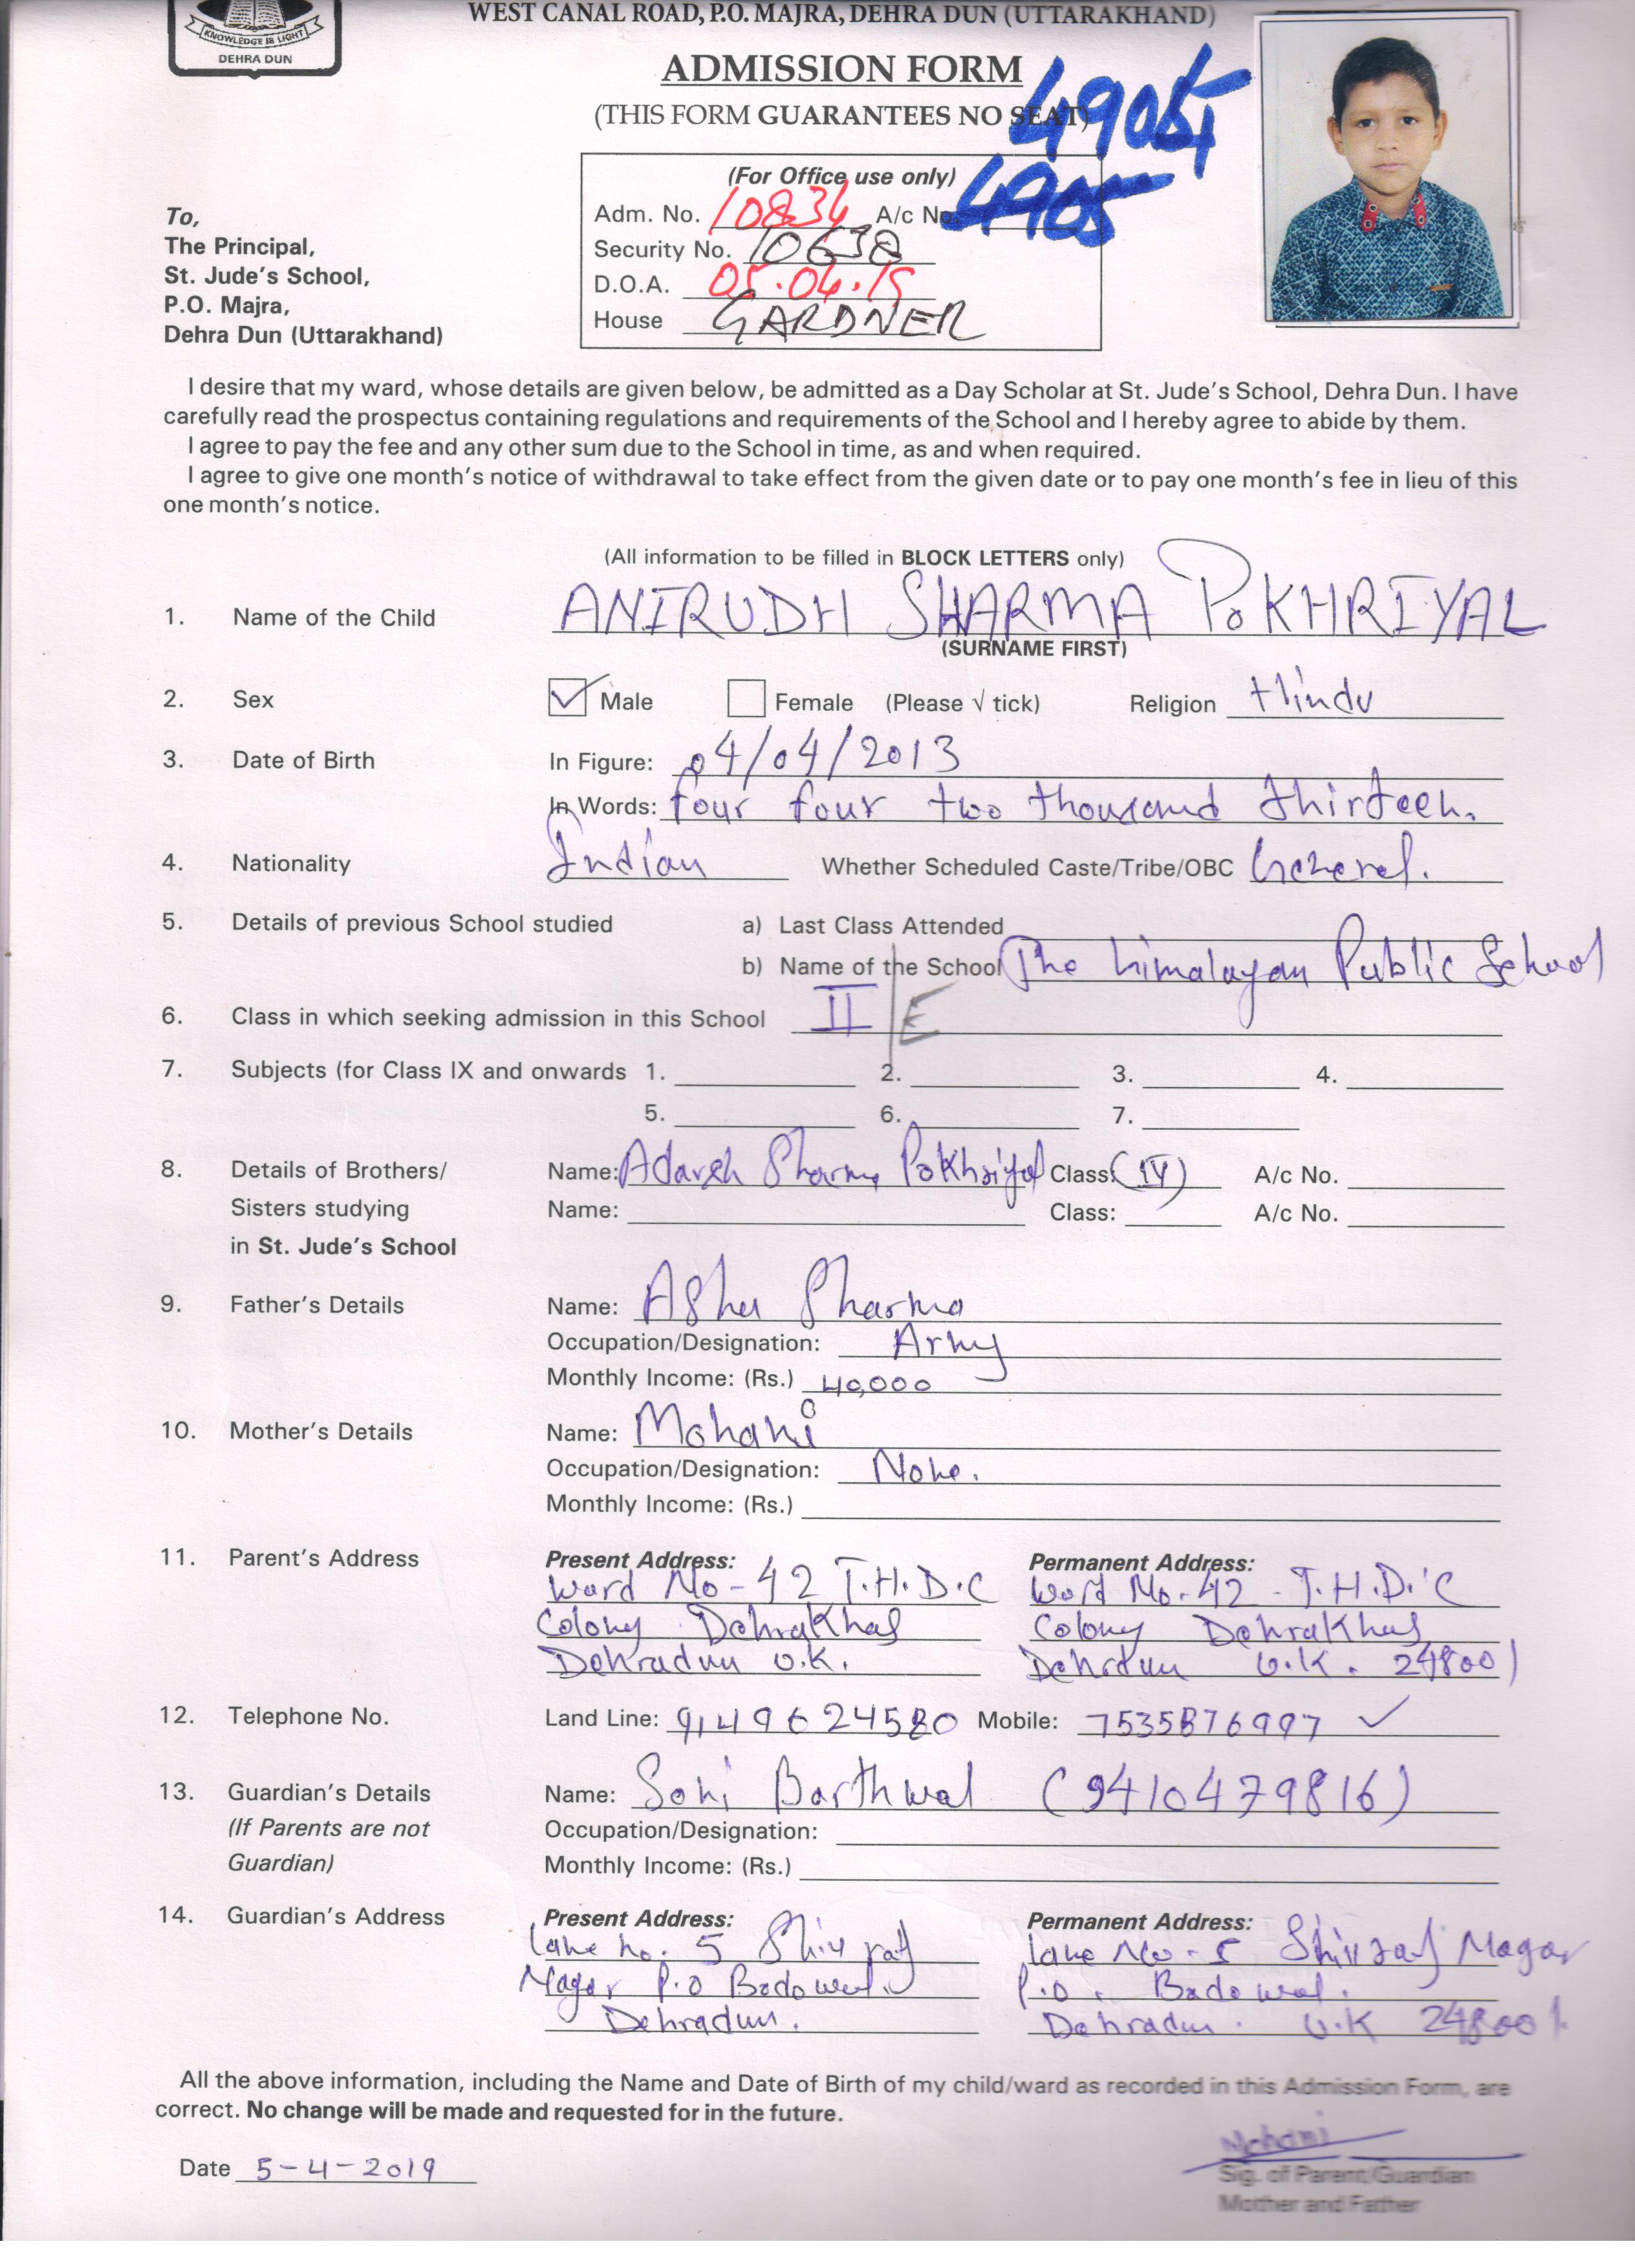 WEST CANAL ROAD, P.O. MAJRA, DEHRA DUN (UTTARAKHAND)
KNOWLEDGE IS LIGHT
DEHRA DUN
ADMISSION FORM
(THIS FORM GUARANTEES NO SEAT)
4905
(For Office use only)
Adm. No. 10834 A/c No. 4905
Security No. 10638
D.O.A. 05.04.19
House GARDNER
To,
The Principal,
St. Jude's School,
P.O. Majra,
Dehra Dun (Uttarakhand)
I desire that my ward, whose details are given below, be admitted as a Day Scholar at St. Jude's School, Dehra Dun. I have
carefully read the prospectus containing regulations and requirements of the School and I hereby agree to abide by them.
I agree to pay the fee and any other sum due to the School in time, as and when required.
I agree to give one month's notice of withdrawal to take effect from the given date or to pay one month's fee in lieu of this
one month's notice.
(All information to be filled in BLOCK LETTERS only)
1. Name of the Child ANIRUDH SHARMA POKHRIYAL
(SURNAME FIRST)
2. Sex Male Female (Please √ tick) Religion Hindu
3. Date of Birth In Figure: 04/04/2013
In Words: four four two thousand thirteen.
4. Nationality Indian Whether Scheduled Caste/Tribe/OBC General.
5. Details of previous School studied a) Last Class Attended
b) Name of the School The himalayan Public School
6. Class in which seeking admission in this School II E
7. Subjects (for Class IX and onwards 1. 2. 3. 4.
5. 6. 7.
8. Details of Brothers/ Name: Adarsh Sharma Pokhriyal Class: (IV) A/c No.
Sisters studying Name: Class: A/c No.
in St. Jude's School
9. Father's Details Name: Ashu Sharma
Occupation/Designation: Army
Monthly Income: (Rs.) 40,000
10. Mother's Details Name: Mohani
Occupation/Designation: None.
Monthly Income: (Rs.)
11. Parent's Address Present Address: Permanent Address:
Ward No-42 T.H.D.C Word No.42 - T.H.D.C
Colony Dehrakhas Colony Dehrakhas
Dehradun U.K. Dehrdun U.K. 248001
12. Telephone No. Land Line: 9149624580 Mobile: 7535876997 ✓
13. Guardian's Details Name: Soni Barthwal (9410479816)
(If Parents are not Occupation/Designation:
Guardian) Monthly Income: (Rs.)
14. Guardian's Address Present Address: Permanent Address:
lane no. 5 Shiv raj lane No-5 Shivraj Nagar
Nagar P.O Badowal. P.O. Badowal.
Dehradun. Dehradun. U.K 248001
All the above information, including the Name and Date of Birth of my child/ward as recorded in this Admission Form, are
correct. No change will be made and requested for in the future.
Mohani
Date 5-4-2019
Sig. of Parent/Guardian
Mother and Father